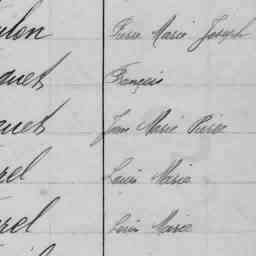 Pierre Marie Joseph
quet François
quet Jean Marie Pierre
rel Louis Marie
rel Louis Marie